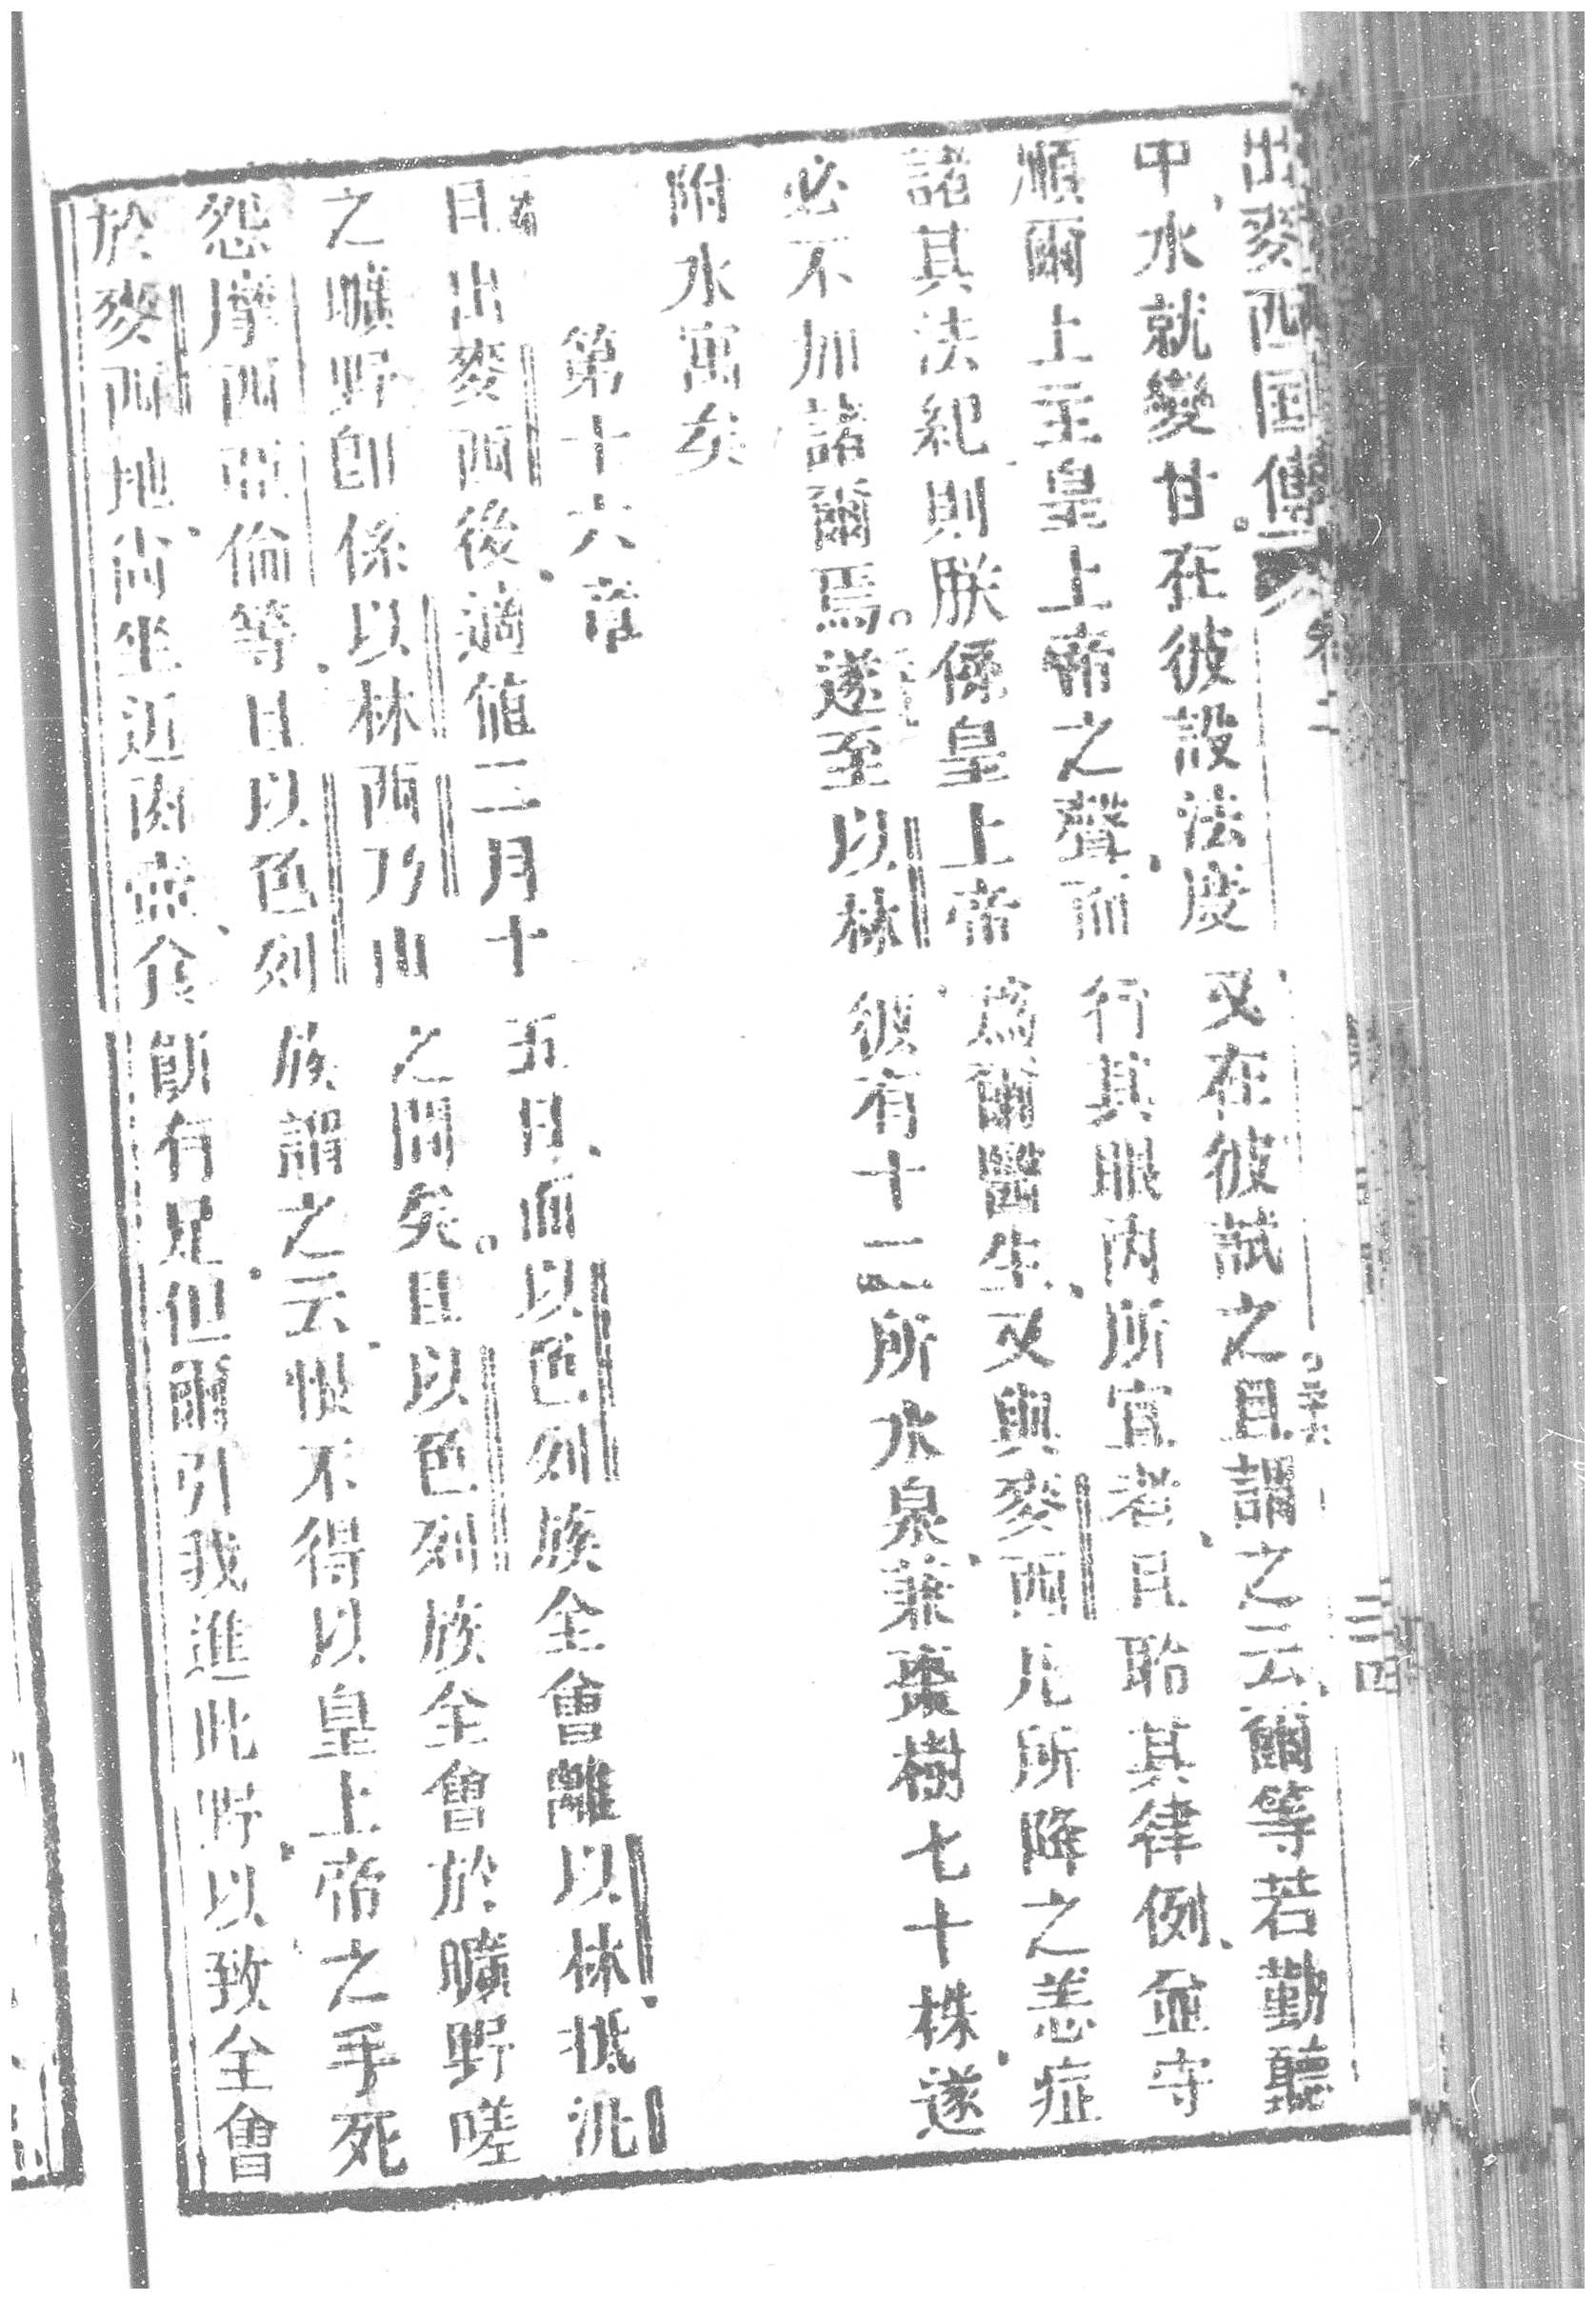 出麥西国傳 卷二 三四
中水就變甘在彼設法度又在彼試之且謂之云爾等若勤聽
順爾上主皇上帝之聲而行其眼内所宜者且聆其律例並守
諸其法紀則朕係皇上帝為爾醫生又與麥西凡所降之恙症
必不加諸爾焉遂至以林彼有十二所水泉兼棗樹七十株遂
附水寓矣
第十六章
且出麥西後適值二月十五日而以色列族全會離以林抵汦
之曠野即係以林西乃山之間矣且以色列族全會於曠野嗟
怨摩西亞倫等且以色列族謂之云恨不得以皇上帝之手死
於麥西地尚坐近肉壺食餅有足但爾引我進此野以致全會